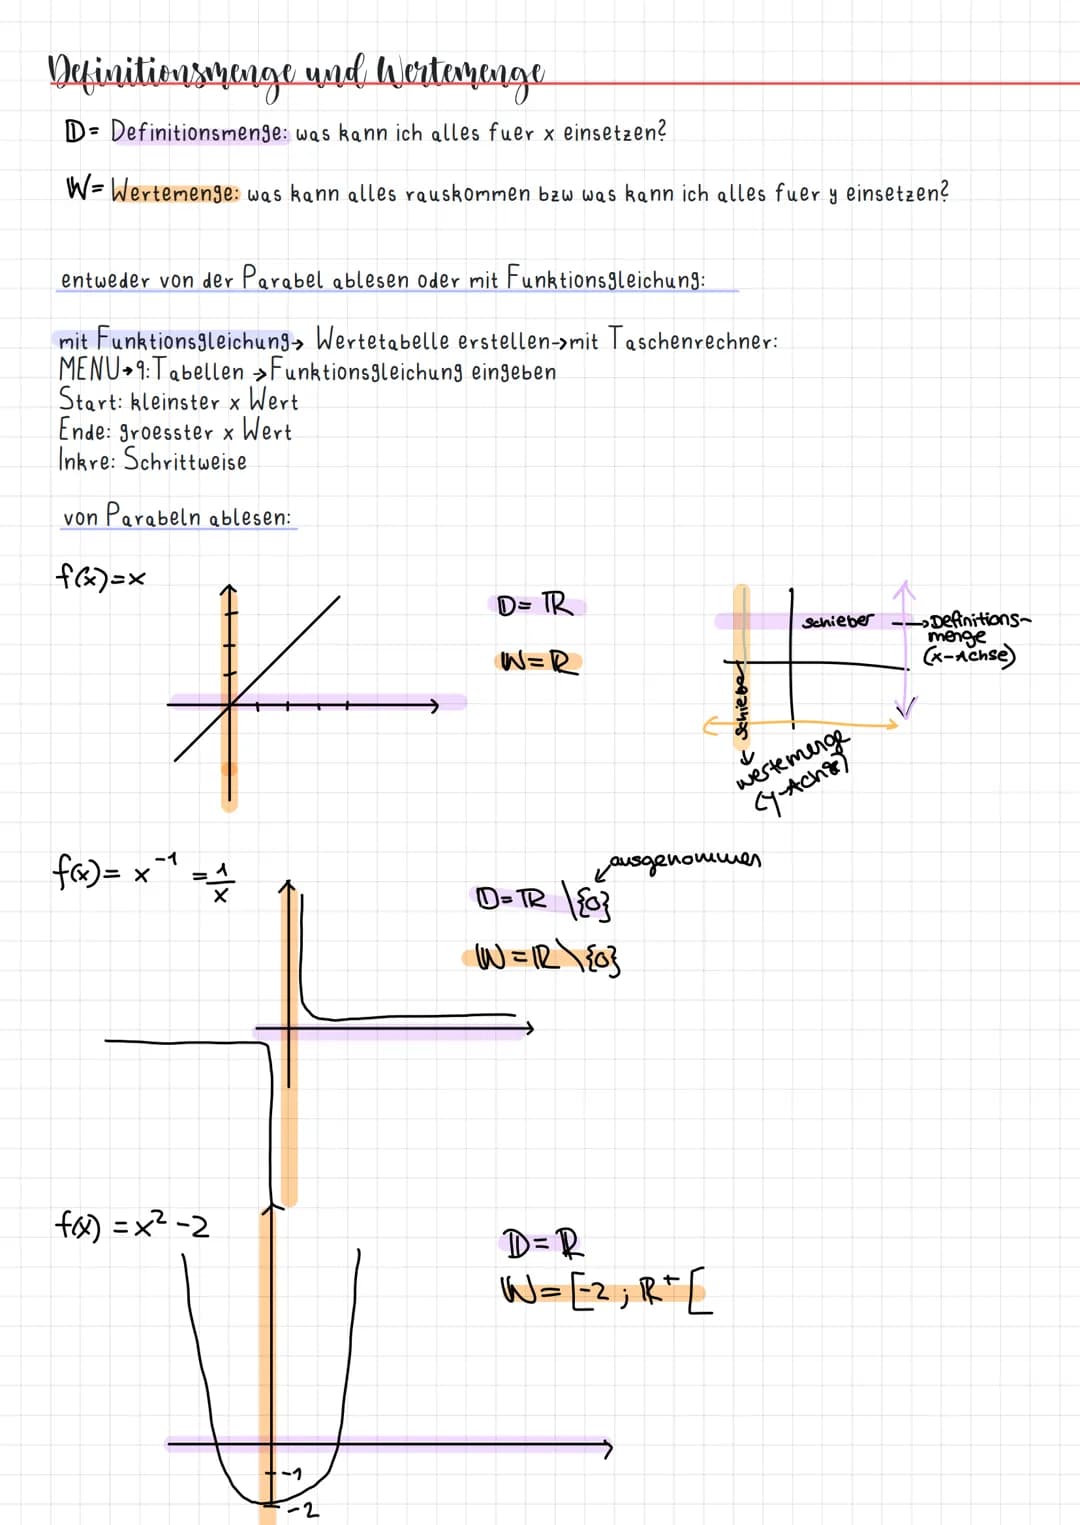 Definitionsmenge und Wertemenge
D= Definitionsmenge: was kann ich alles fuer x einsetzen?
W= Wertemenge: was kann alles rauskommen bzw was kann ich alles fuer y einsetzen?
entweder von der Parabel ablesen oder mit Funktionsgleichung:
mit Funktionsgleichung→ Wertetabelle erstellen→mit Taschenrechner:
MENU→9:Tabellen →Funktionsgleichung eingeben
Start: kleinster x Wert
Ende: groesster x Wert
Inkre: Schrittweise
von Parabeln ablesen:
f(x)=x
D= ℝ
W=ℝ
Schieber
→Definitions-
menge
(x-Achse)
Schieber
westemenge
(y-Achse)
f(x)= x⁻¹ = 1/x
ausgenommen
D=ℝ \{0}
W=ℝ\{0}
f(x) =x²-2
D=ℝ
W=[-2;ℝ⁺[
-1
-2